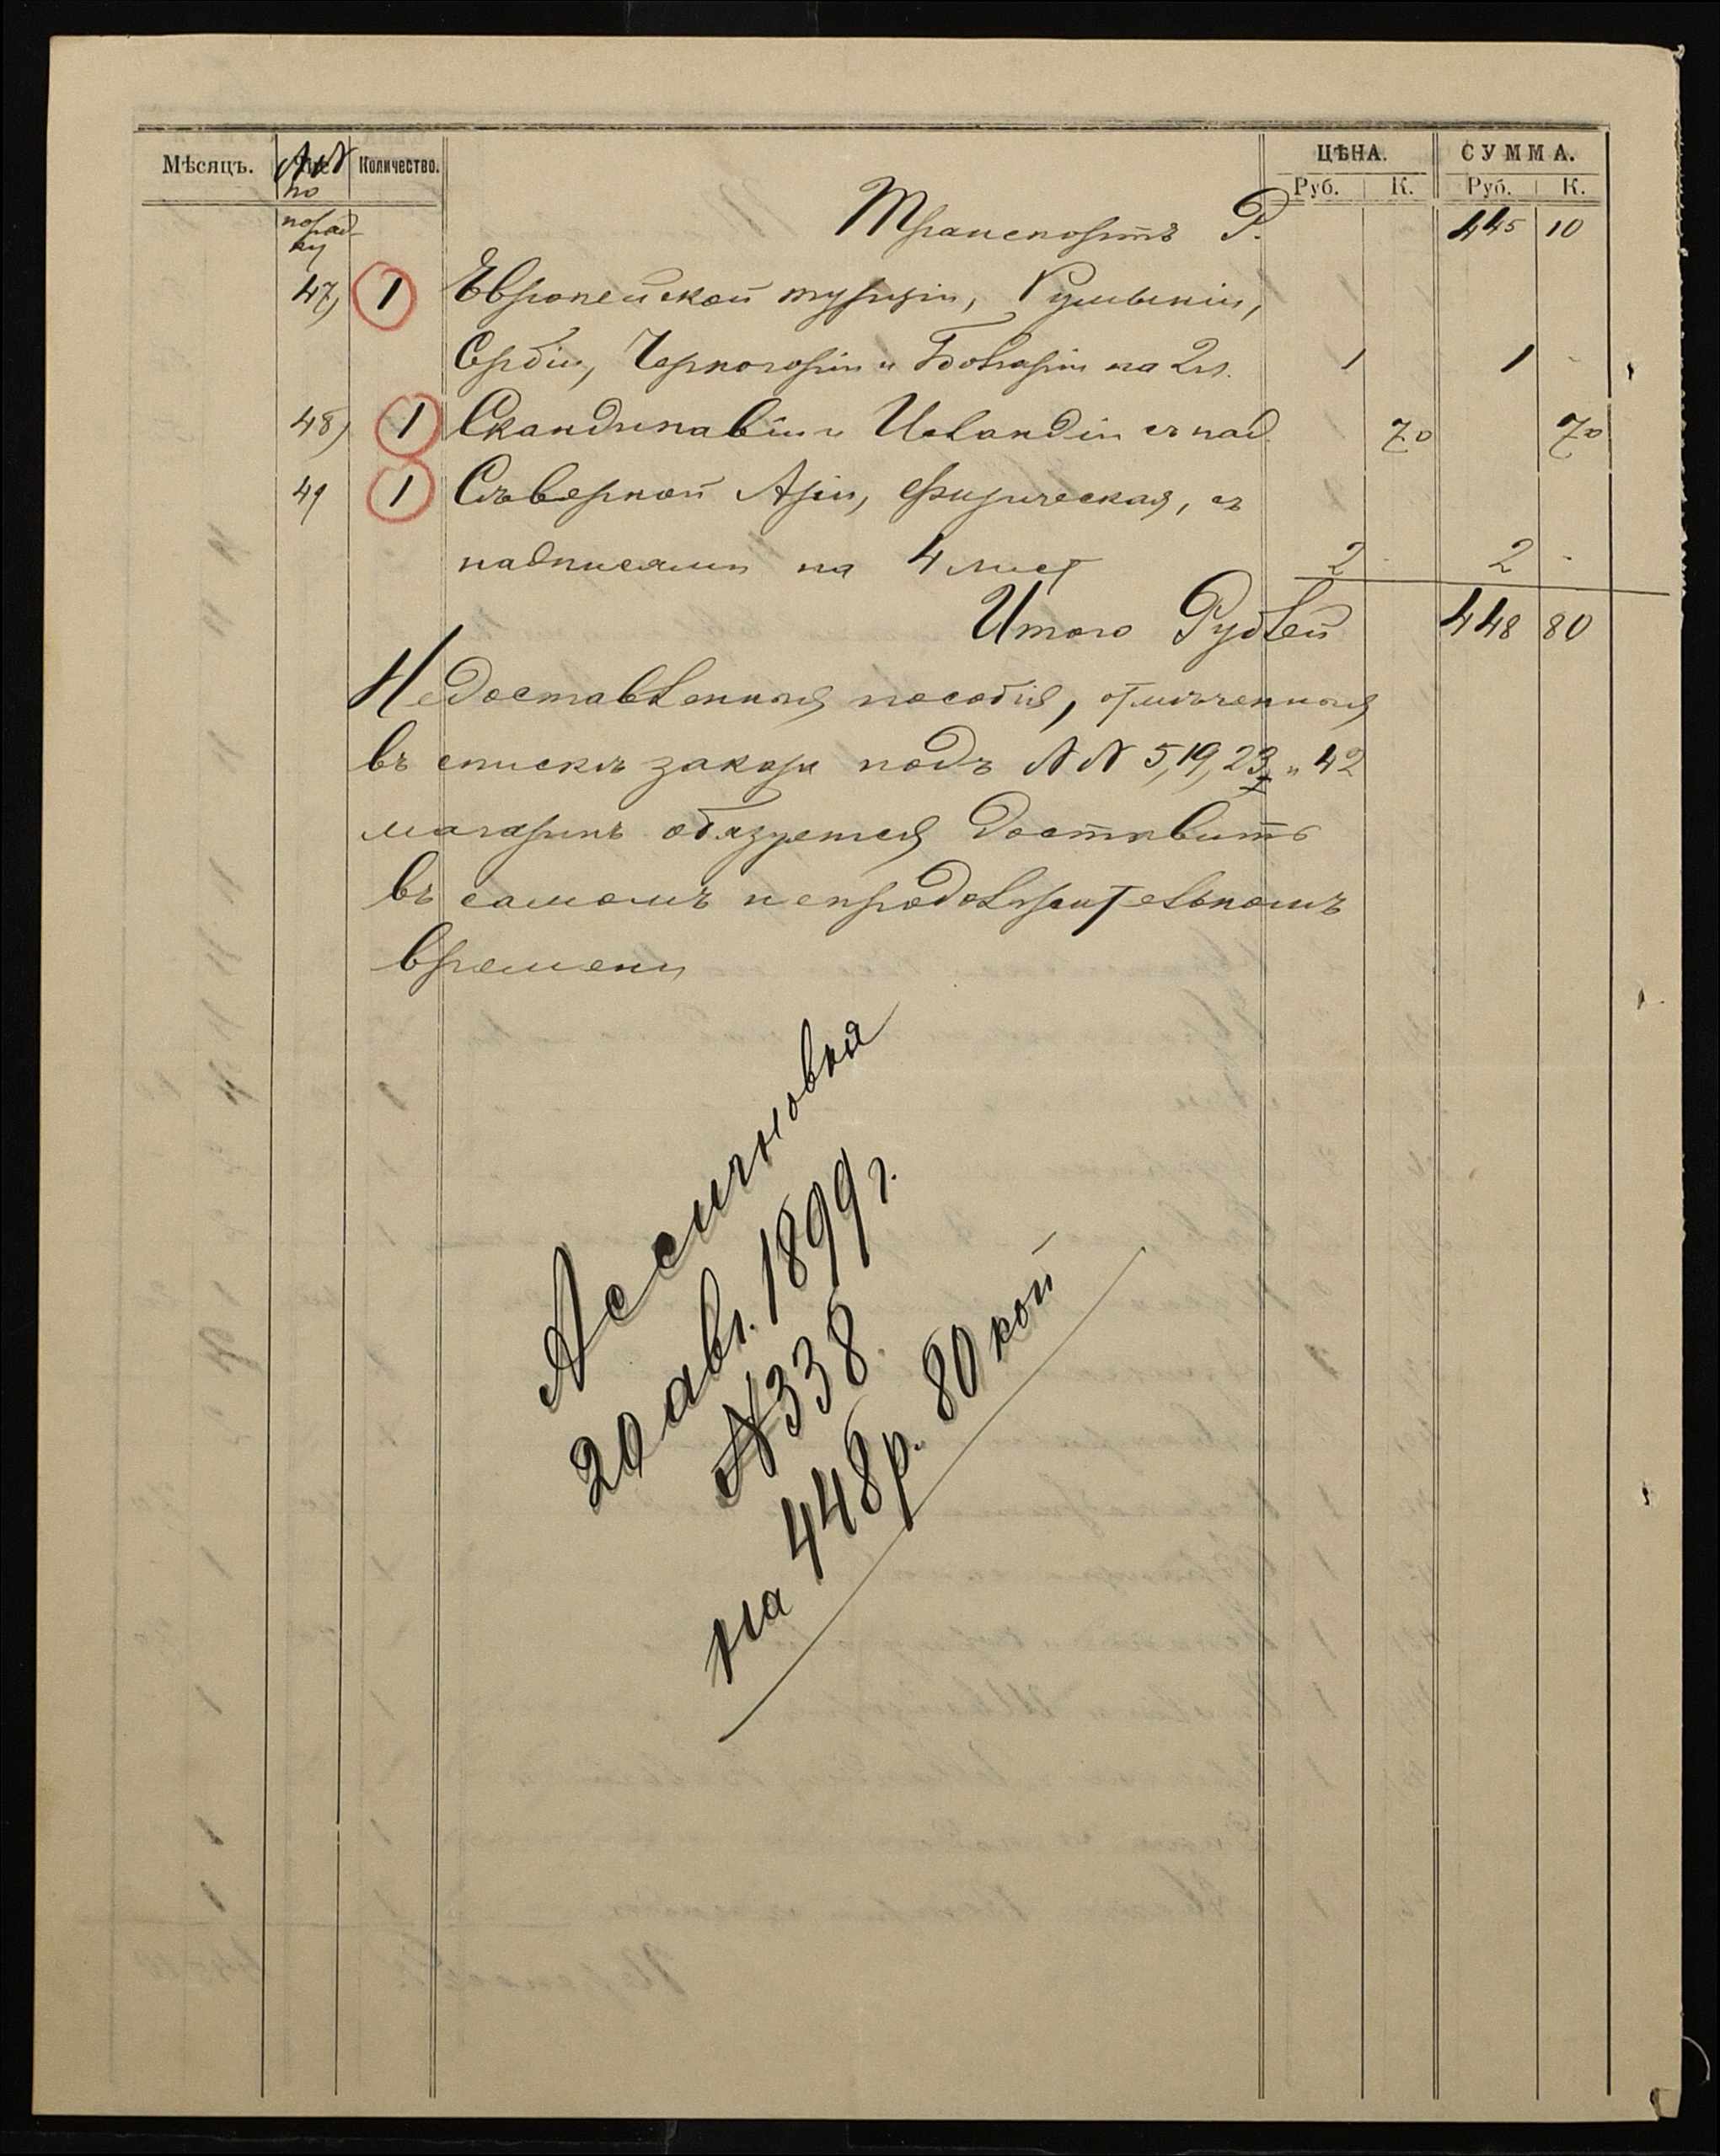 Мѣсяцъ. №№ Количество. ЦѢНА. СУММА.
по Руб. К. Руб. К.
поряд-
ку
Транспортъ Р. 445 10
47) 1 Европейской Турціи, Румыніи,
Сербіи, Черногоріи и Болгаріи на 2 л. 1 1 -
48) 1 Скандинавіи и Исландіи съ над. 70 70
49 1 Съверной Азіи, физическая, съ
надписями на 4 лист 2 - 2 -
Итого Рублей 448 80
Недоставленныя пособія, отмѣченныя
въ спискѣ заказа подъ №№ 5, 19, 23, и 42
магазинъ обязуется доставить
въ самомъ непродолжительномъ
времени
Ассигновка
20 авг. 1899 г.
№ 338.
на 448 р. 80 коп